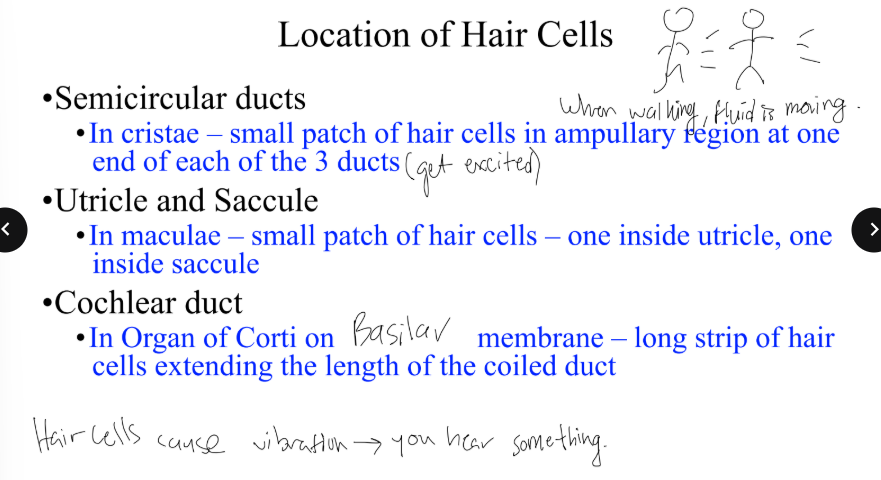 Location of Hair Cells
•Semicircular ducts
When walking, fluid is moving.
•In cristae – small patch of hair cells in ampullary region at one
end of each of the 3 ducts (get excited)
•Utricle and Saccule
•In maculae – small patch of hair cells – one inside utricle, one
inside saccule
•Cochlear duct
•In Organ of Corti on Basilar membrane – long strip of hair
cells extending the length of the coiled duct
Hair cells cause vibration → you hear something.